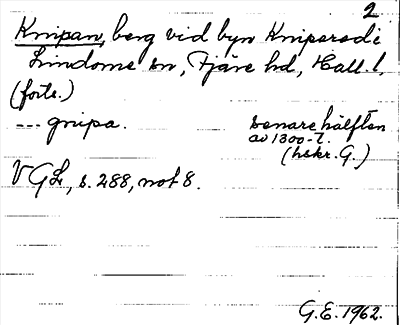 2
Knipan, berg vid byn Knipared i
Lindome sn, Fjäre hd, Hall. l.
(forts.)
--- gnipa. senare hälften
av 1300-t.
(hskr. G.)
VGL, s. 288, not 8.
G.E. 1962.